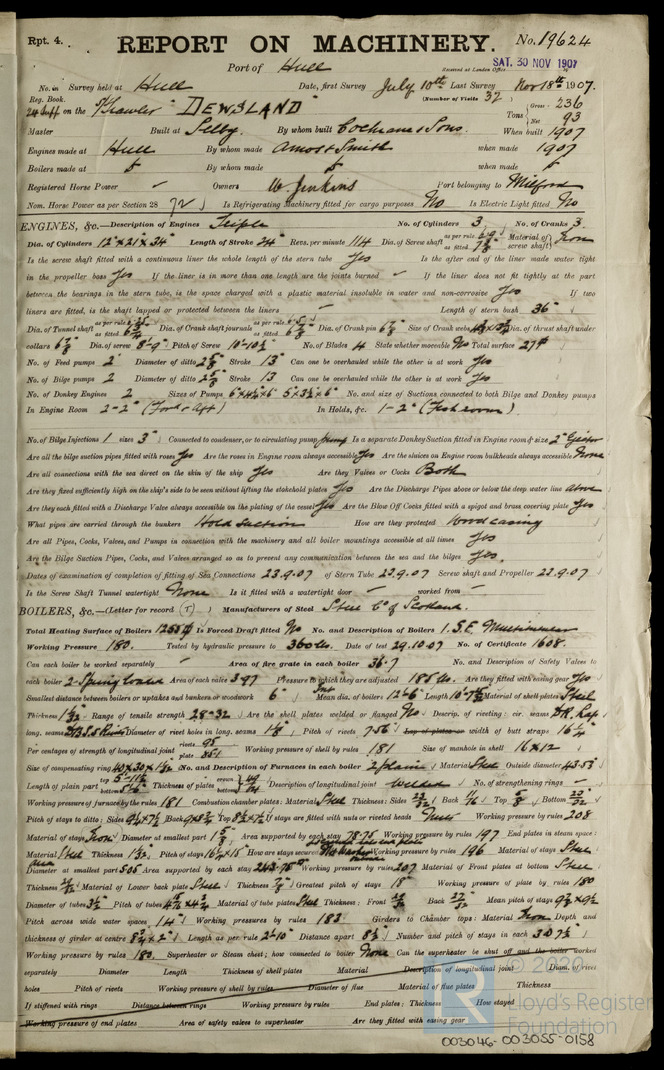 Rpt. 4.
REPORT ON MACHINERY. No. 19624
Port of Hull
Received at London Office SAT. 30 NOV 1907
No. in Survey held at Hull Date, first Survey July 10th Last Survey Nov 18th 1907.
Reg. Book. (Number of Visits 32)
on the "Trawler" "DEWSLAND" Tons Gross 236 Net 93
Master Built at Selby By whom built Cochrane & Sons. When built 1907
Engines made at Hull By whom made Amos & Smith when made 1907
Boilers made at By whom made when made
Registered Horse Power Owners W Jenkins Port belonging to Milford
Nom. Horse Power as per Section 28 72 Is Refrigerating Machinery fitted for cargo purposes No Is Electric Light fitted No
ENGINES, &c.—Description of Engines Triple No. of Cylinders 3 No. of Cranks 3
Dia. of Cylinders 12" x 21 x 34" Length of Stroke 24" Revs. per minute 114 Dia. of Screw shaft as per rule as fitted Material of screw shaft Iron
Is the screw shaft fitted with a continuous liner the whole length of the stern tube Yes Is the after end of the liner made water tight
in the propeller boss Yes If the liner is in more than one length are the joints burned If the liner does not fit tightly at the part
between the bearings in the stern tube, is the space charged with a plastic material insoluble in water and non-corrosive Yes If two
liners are fitted, is the shaft lapped or protected between the liners Length of stern bush 36"
Dia. of Tunnel shaft as per rule as fitted Dia. of Crank shaft journals as per rule as fitted Dia. of Crank pin Size of Crank webs Dia. of thrust shaft under
collars Dia. of screw 8'-9" Pitch of Screw 10'-10½" No. of Blades 4 State whether moveable No Total surface 27
No. of Feed pumps 2 Diameter of ditto 2⅝ Stroke 13" Can one be overhauled while the other is at work Yes
No. of Bilge pumps 2 Diameter of ditto 2⅝ Stroke 13 Can one be overhauled while the other is at work Yes
No. of Donkey Engines 2 Sizes of Pumps 6"x4½"x6" 5"x3½"x6" No. and size of Suctions connected to both Bilge and Donkey pumps
In Engine Room 2-2" (Ford & Aft) In Holds, &c. 1-2" (Fishroom)
No. of Bilge Injections 1 sizes 3" Connected to condenser, or to circulating pump pump Is a separate Donkey Suction fitted in Engine room & size 2" Ejector
Are all the bilge suction pipes fitted with roses Yes Are the roses in Engine room always accessible Yes Are the sluices on Engine room bulkheads always accessible None
Are all connections with the sea direct on the skin of the ship Yes Are they Valves or Cocks Both
Are they fixed sufficiently high on the ship's side to be seen without lifting the stokehold plates Yes Are the Discharge Pipes above or below the deep water line above
Are they each fitted with a Discharge Valve always accessible on the plating of the vessel Yes Are the Blow Off Cocks fitted with a spigot and brass covering plate Yes
What pipes are carried through the bunkers Hold Suction How are they protected Wood casing
Are all Pipes, Cocks, Valves, and Pumps in connection with the machinery and all boiler mountings accessible at all times Yes
Are the Bilge Suction Pipes, Cocks, and Valves arranged so as to prevent any communication between the sea and the bilges Yes.
Dates of examination of completion of fitting of Sea Connections 23.9.07 of Stern Tube 23.9.07 Screw shaft and Propeller 23.9.07
Is the Screw Shaft Tunnel watertight None Is it fitted with a watertight door worked from
BOILERS, &c.—(Letter for record (T)) Manufacturers of Steel Steel Co of Scotland.
Total Heating Surface of Boilers 1255 Is Forced Draft fitted No No. and Description of Boilers 1. S.E. Multitubular
Working Pressure 180. Tested by hydraulic pressure to 360 lbs. Date of test 29.10.07 No. of Certificate 1608.
Can each boiler be worked separately Area of fire grate in each boiler 36.7 No. and Description of Safety Valves to
each boiler 2-Spring loaded Area of each valve 3.97 Pressure to which they are adjusted 185 lbs. Are they fitted with easing gear Yes
Smallest distance between boilers or uptakes and bunkers or woodwork 6" Mean dia. of boilers 12'-6" Length Material of shell plates Steel
Thickness 1 1/32 Range of tensile strength 28-32 Are the shell plates welded or flanged No Descrip. of riveting: cir. seams D.R. Lap
long. seams Diameter of rivet holes in long. seams 1⅛ Pitch of rivets 7.56 Lap of plates or width of butt straps 16¼
Per centages of strength of longitudinal joint rivets 95 plate 85.1 Working pressure of shell by rules 181 Size of manhole in shell 16 x 12"
Size of compensating ring No. and Description of Furnaces in each boiler 2 plain Material Steel Outside diameter 43.53
Length of plain part top bottom Thickness of plates crown bottom Description of longitudinal joint Welded No. of strengthening rings
Working pressure of furnace by the rules 181 Combustion chamber plates: Material Steel Thickness: Sides Back 11/16 Top 5/8 Bottom
Pitch of stays to ditto: Sides Back Top If stays are fitted with nuts or riveted heads Nuts Working pressure by rules 208
Material of stays Iron Diameter at smallest part Area supported by each stay 78.75 Working pressure by rules 197 End plates in steam space:
Material Steel Thickness 1 1/32 Pitch of stays How are stays secured Working pressure by rules 196 Material of stays Steel
Area Diameter at smallest part 5.05 Area supported by each stay 243.75 Working pressure by rules 207 Material of Front plates at bottom Steel
Thickness Material of Lower back plate Steel Thickness Greatest pitch of stays 18" Working pressure of plate by rules 180
Diameter of tubes 3½ Pitch of tubes Material of tube plates Steel Thickness: Front Back Mean pitch of stays
Pitch across wide water spaces 14" Working pressures by rules 183 Girders to Chamber tops: Material Iron Depth and
thickness of girder at centre Length as per rule 2'-10" Distance apart 8½ Number and pitch of stays in each 3 @ 7½
Working pressure by rules 183 Superheater or Steam chest; how connected to boiler None Can the superheater be shut off and the boiler worked
separately Diameter Length Thickness of shell plates Material Description of longitudinal joint Diam. of rivet
holes Pitch of rivets Working pressure of shell by rules Diameter of flue Material of flue plates Thickness
If stiffened with rings Distance between rings Working pressure by rules End plates: Thickness How stayed
Working pressure of end plates Area of safety valves to superheater Are they fitted with easing gear
© 2020
Lloyd's Register
Foundation
003046-003055-0158